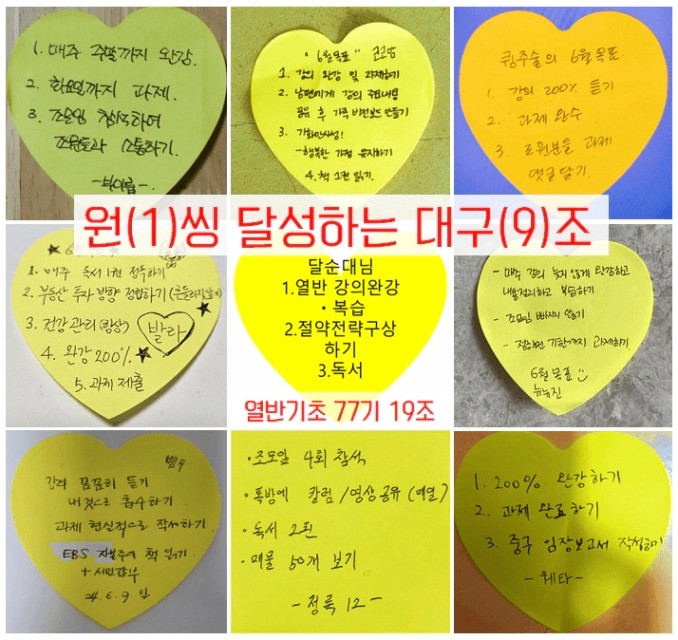 1. 매주 주말까지 완강.
2. 화요일까지 과제.
3. 조모임 참여하여
조원들과 소통하기.
"6월목표"
1. 강의 완강 및 과제하기
2. 남편에게 강의 내용
공유 후 가족 비전보드 만들기
-행복한 가정 유지하기
4. 책 1권 읽기.
퀌주술의 6월목표
1. 강의 200% 듣기
2. 과제 완수
3. 조원분들 과제
댓글 달기.
원(1)씽 달성하는 대구(9)조
1. 매주 독서 1권 정독하기
2. 부동산 투자 방향 정립하기
3. 건강관리(항상)
발라
4. 완강 200%
5. 과제 제출
달순대님
1.열반 강의완강
・복습
2.절약전략구상
하기
3.독서
열반기초 77기 19조
- 매주 강의 늦지 않게 완강하고
내용정리하고 복습하기
- 조모임 빠지지 않기
- 정해진 기한까지 과제하기
6월 목표
뉴뉵진
강의 꼼꼼히 듣기
내것으로 흡수하기
과제 현실적으로 작성하기
EBS 자본주의 책 읽기
+ 서민갑부
24. 6. 9 일
・조모임 4회 참석
・톡방에 칼럼/영상 공유 (매일)
・독서 2권
・매물 50개 보기
- 정륵 12 -
1. 200% 완강하기
2. 과제 완료하기
3. 중구 임장보고서 작성하기
- 웨타 -